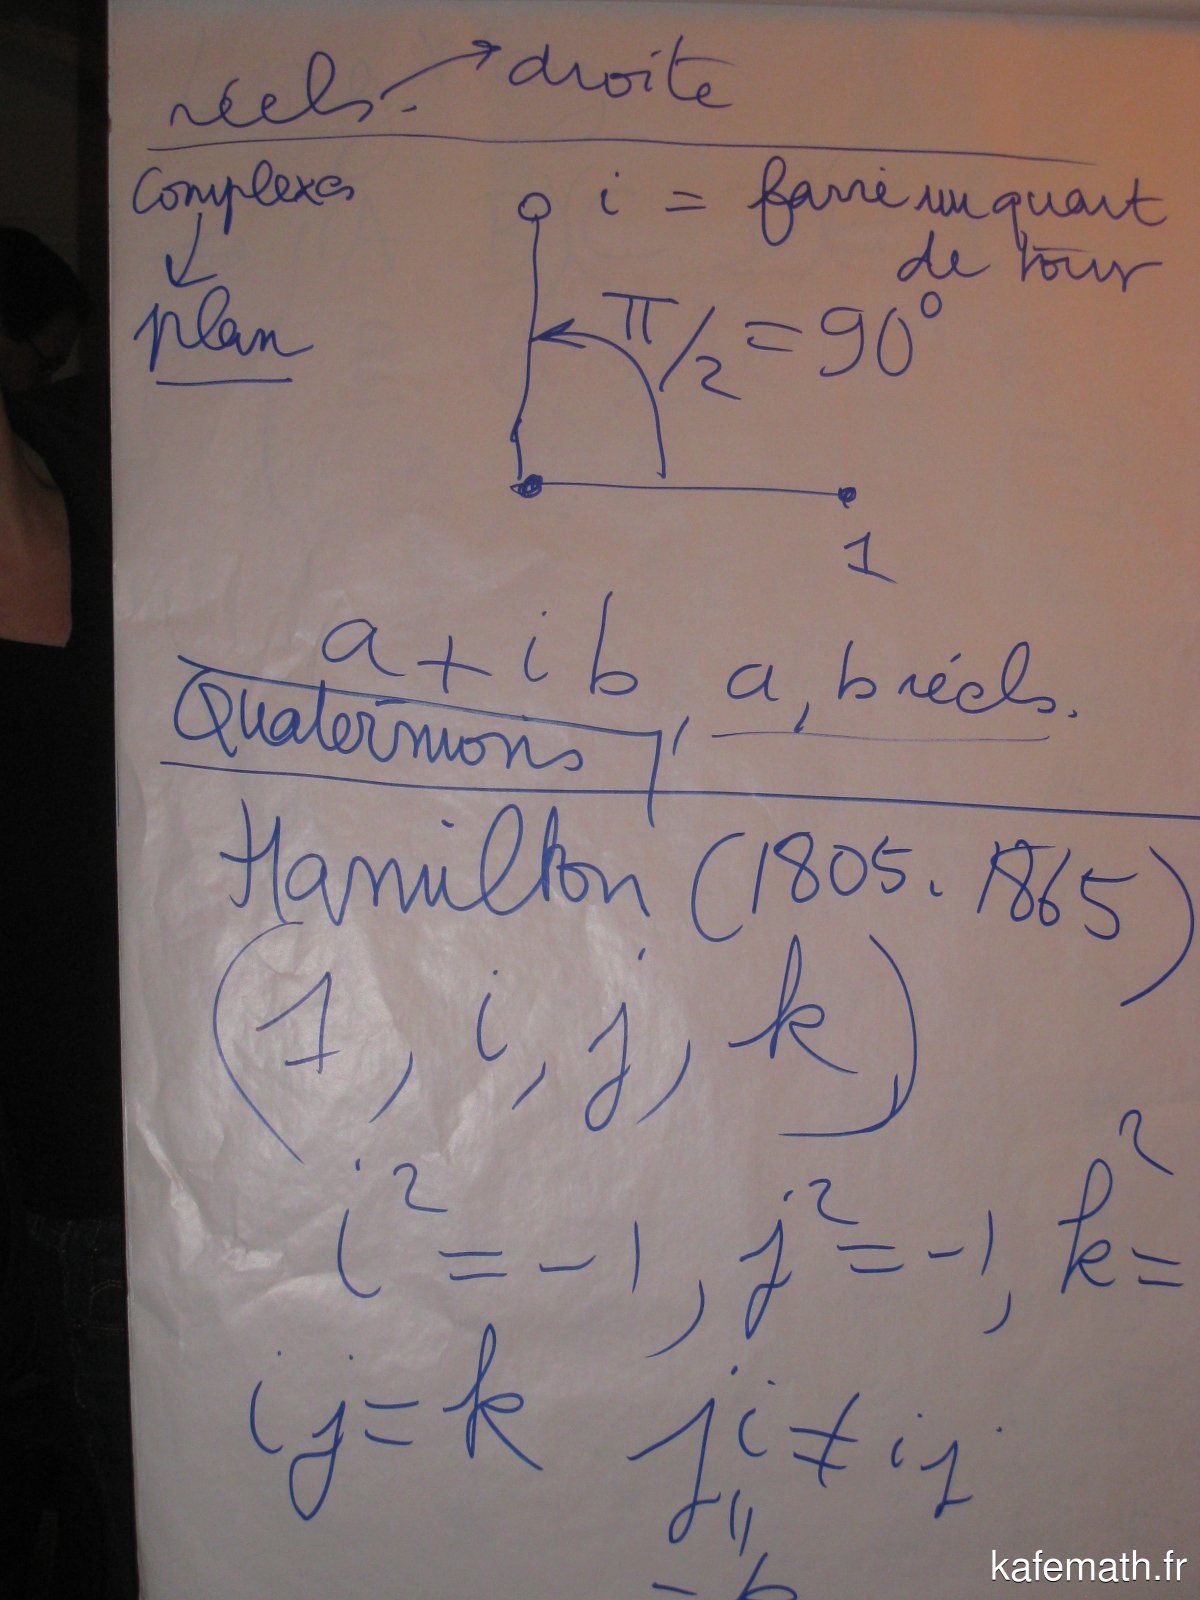 réels. → droite
Complexes
↓
plan
i = faire un quart
de tour
π/2 = 90°
1
a + i b, a, b réels.
Quaternions
Hamilton (1805. 1865)
(1, i, j, k)
i² = -1, j² = -1, k² =
ij = k ji ≠ ij
"
- k
kafemath.fr